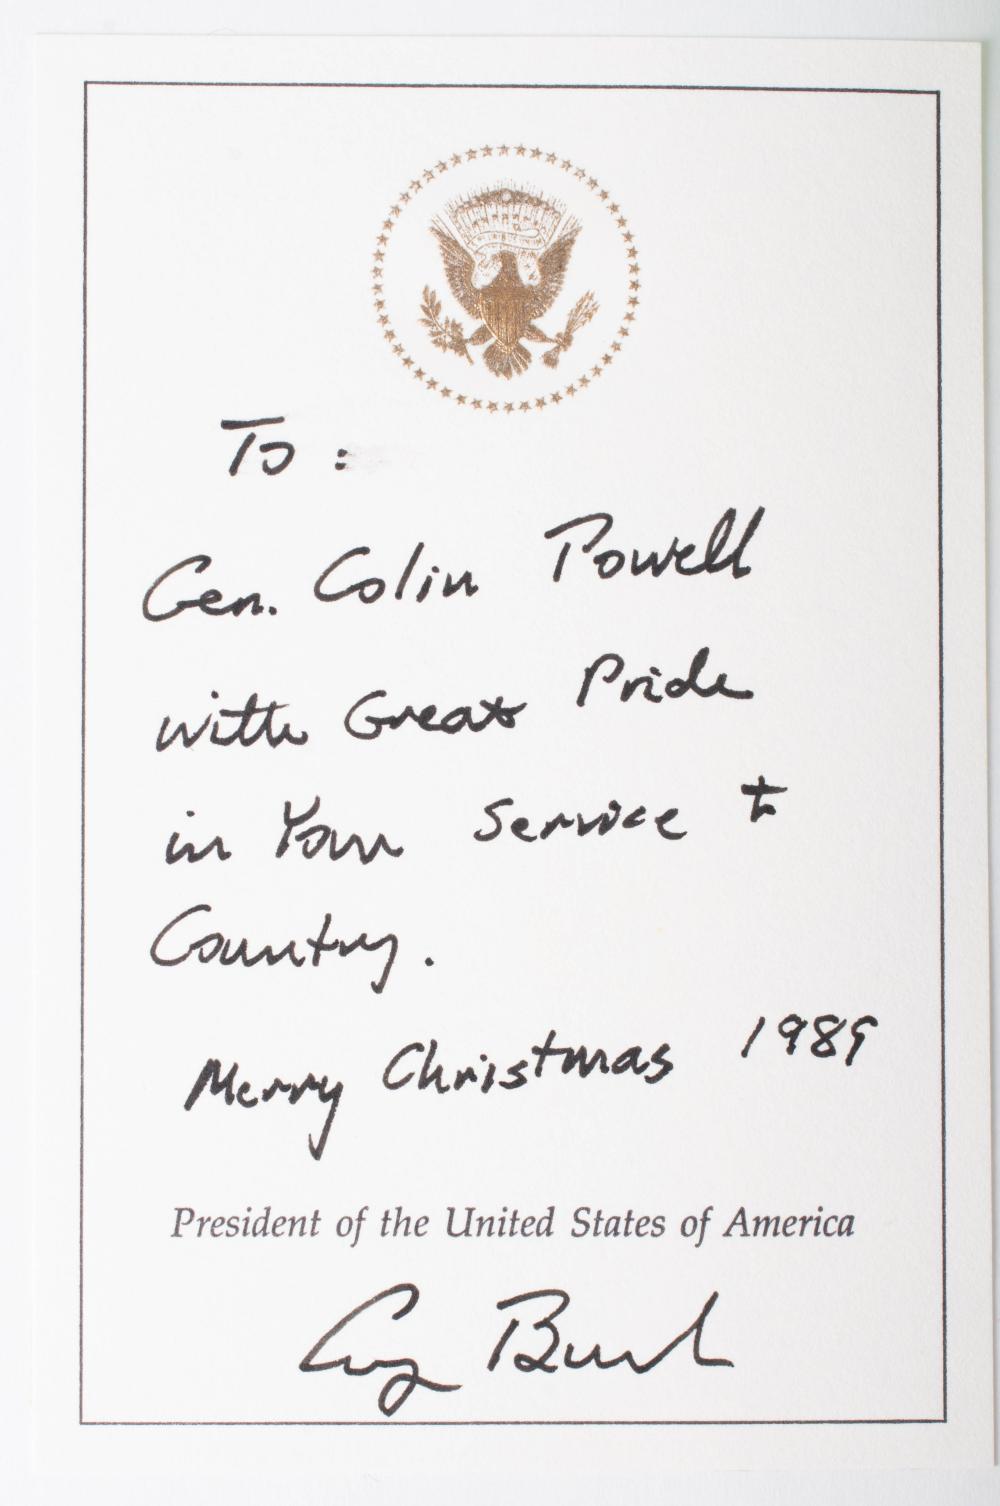 To :
Gen. Colin Powell
with Great Pride
in Your Service to
Country.
Merry Christmas 1989
President of the United States of America
George Bush